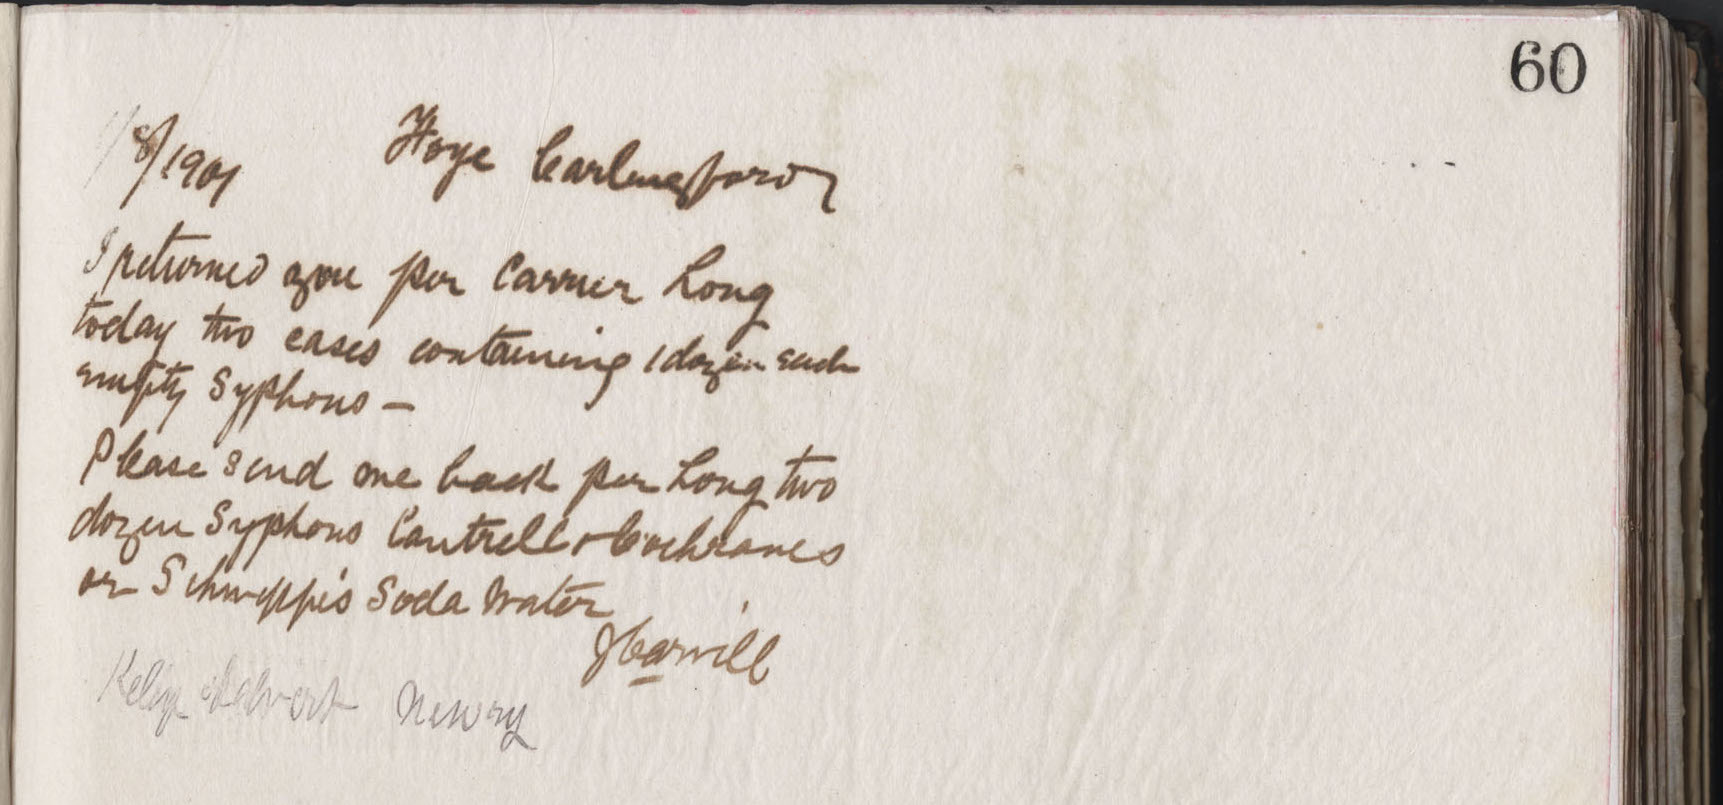 60
/8/1901 Hoye Carlingford
I returned you per Carrier Long
today two cases containing 1 dozen each
empty Syphons -
Please send me back per Long two
dozen Syphons Cantrell & Cochranes
or Schweppe's Soda Water
J Carvill
Newry